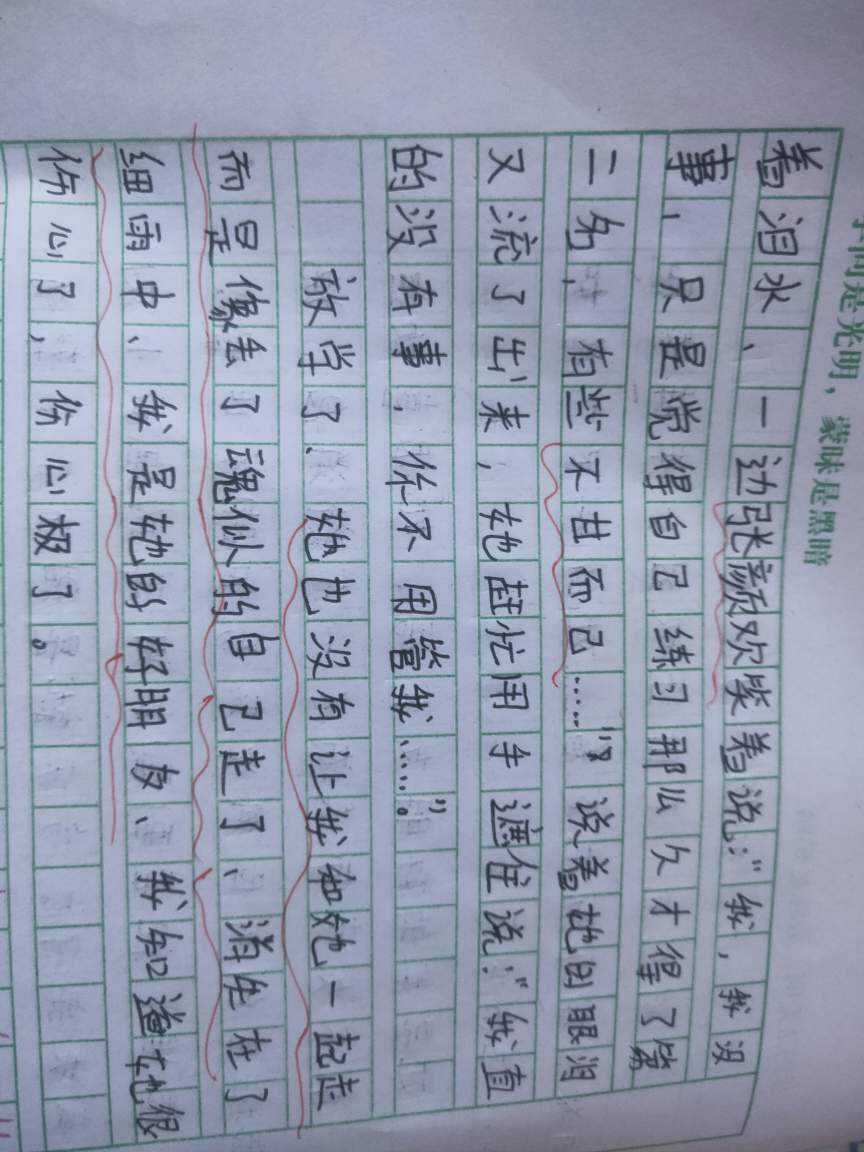 学问是光明，蒙昧是黑暗
着泪水、一边强颜欢笑着说：“我，我没
事，只是觉得自己练习那么久才得了第
二名，有些不甘而已……”说着她的眼泪
又流了出来，她赶忙用手遮住说：“我真
的没有事，你不用管我……。”
放学了、她也没有让我和她一起走
而是像丢了魂似的自己走了、消失在了
细雨中、我是她的好朋友、我知道她很
伤心了，伤心极了。